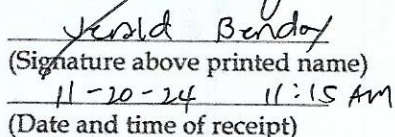 Jerald Benday
(Signature above printed name)
11-20-24 11:15 AM
(Date and time of receipt)